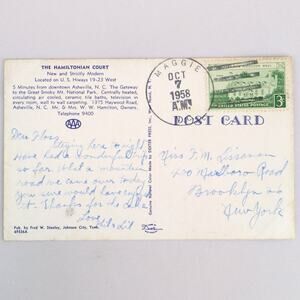 THE HAMILTONIAN COURT
New and Strictly Modern
Located on U.S. Hiways 19-23 West
5 Minutes from downtown Asheville, N. C. The Gateway
to the Great Smoky Mt. National Park. Centrally heated,
circulating air cooled, ceramic tile baths, television in
every room, wall to wall carpeting. 1375 Haywood Road,
Asheville, N. C. Mr. & Mrs. W. W. Hamilton, Owners.
Telephone 9400
AAA
MAGGIE
OCT
7
1958
A.M.
3¢
UNITED STATES POSTAGE
POST CARD
Dear Floss,
Staying here tonight
Have had a wonderful trip
so far. What a mountain
road we came over today
you sure would have enjoyed
it. Thanks for the
Love
Miss F. M.
Road
Brooklyn
New York
Pub. by Fred W. Stanley, Johnson City, Tenn.